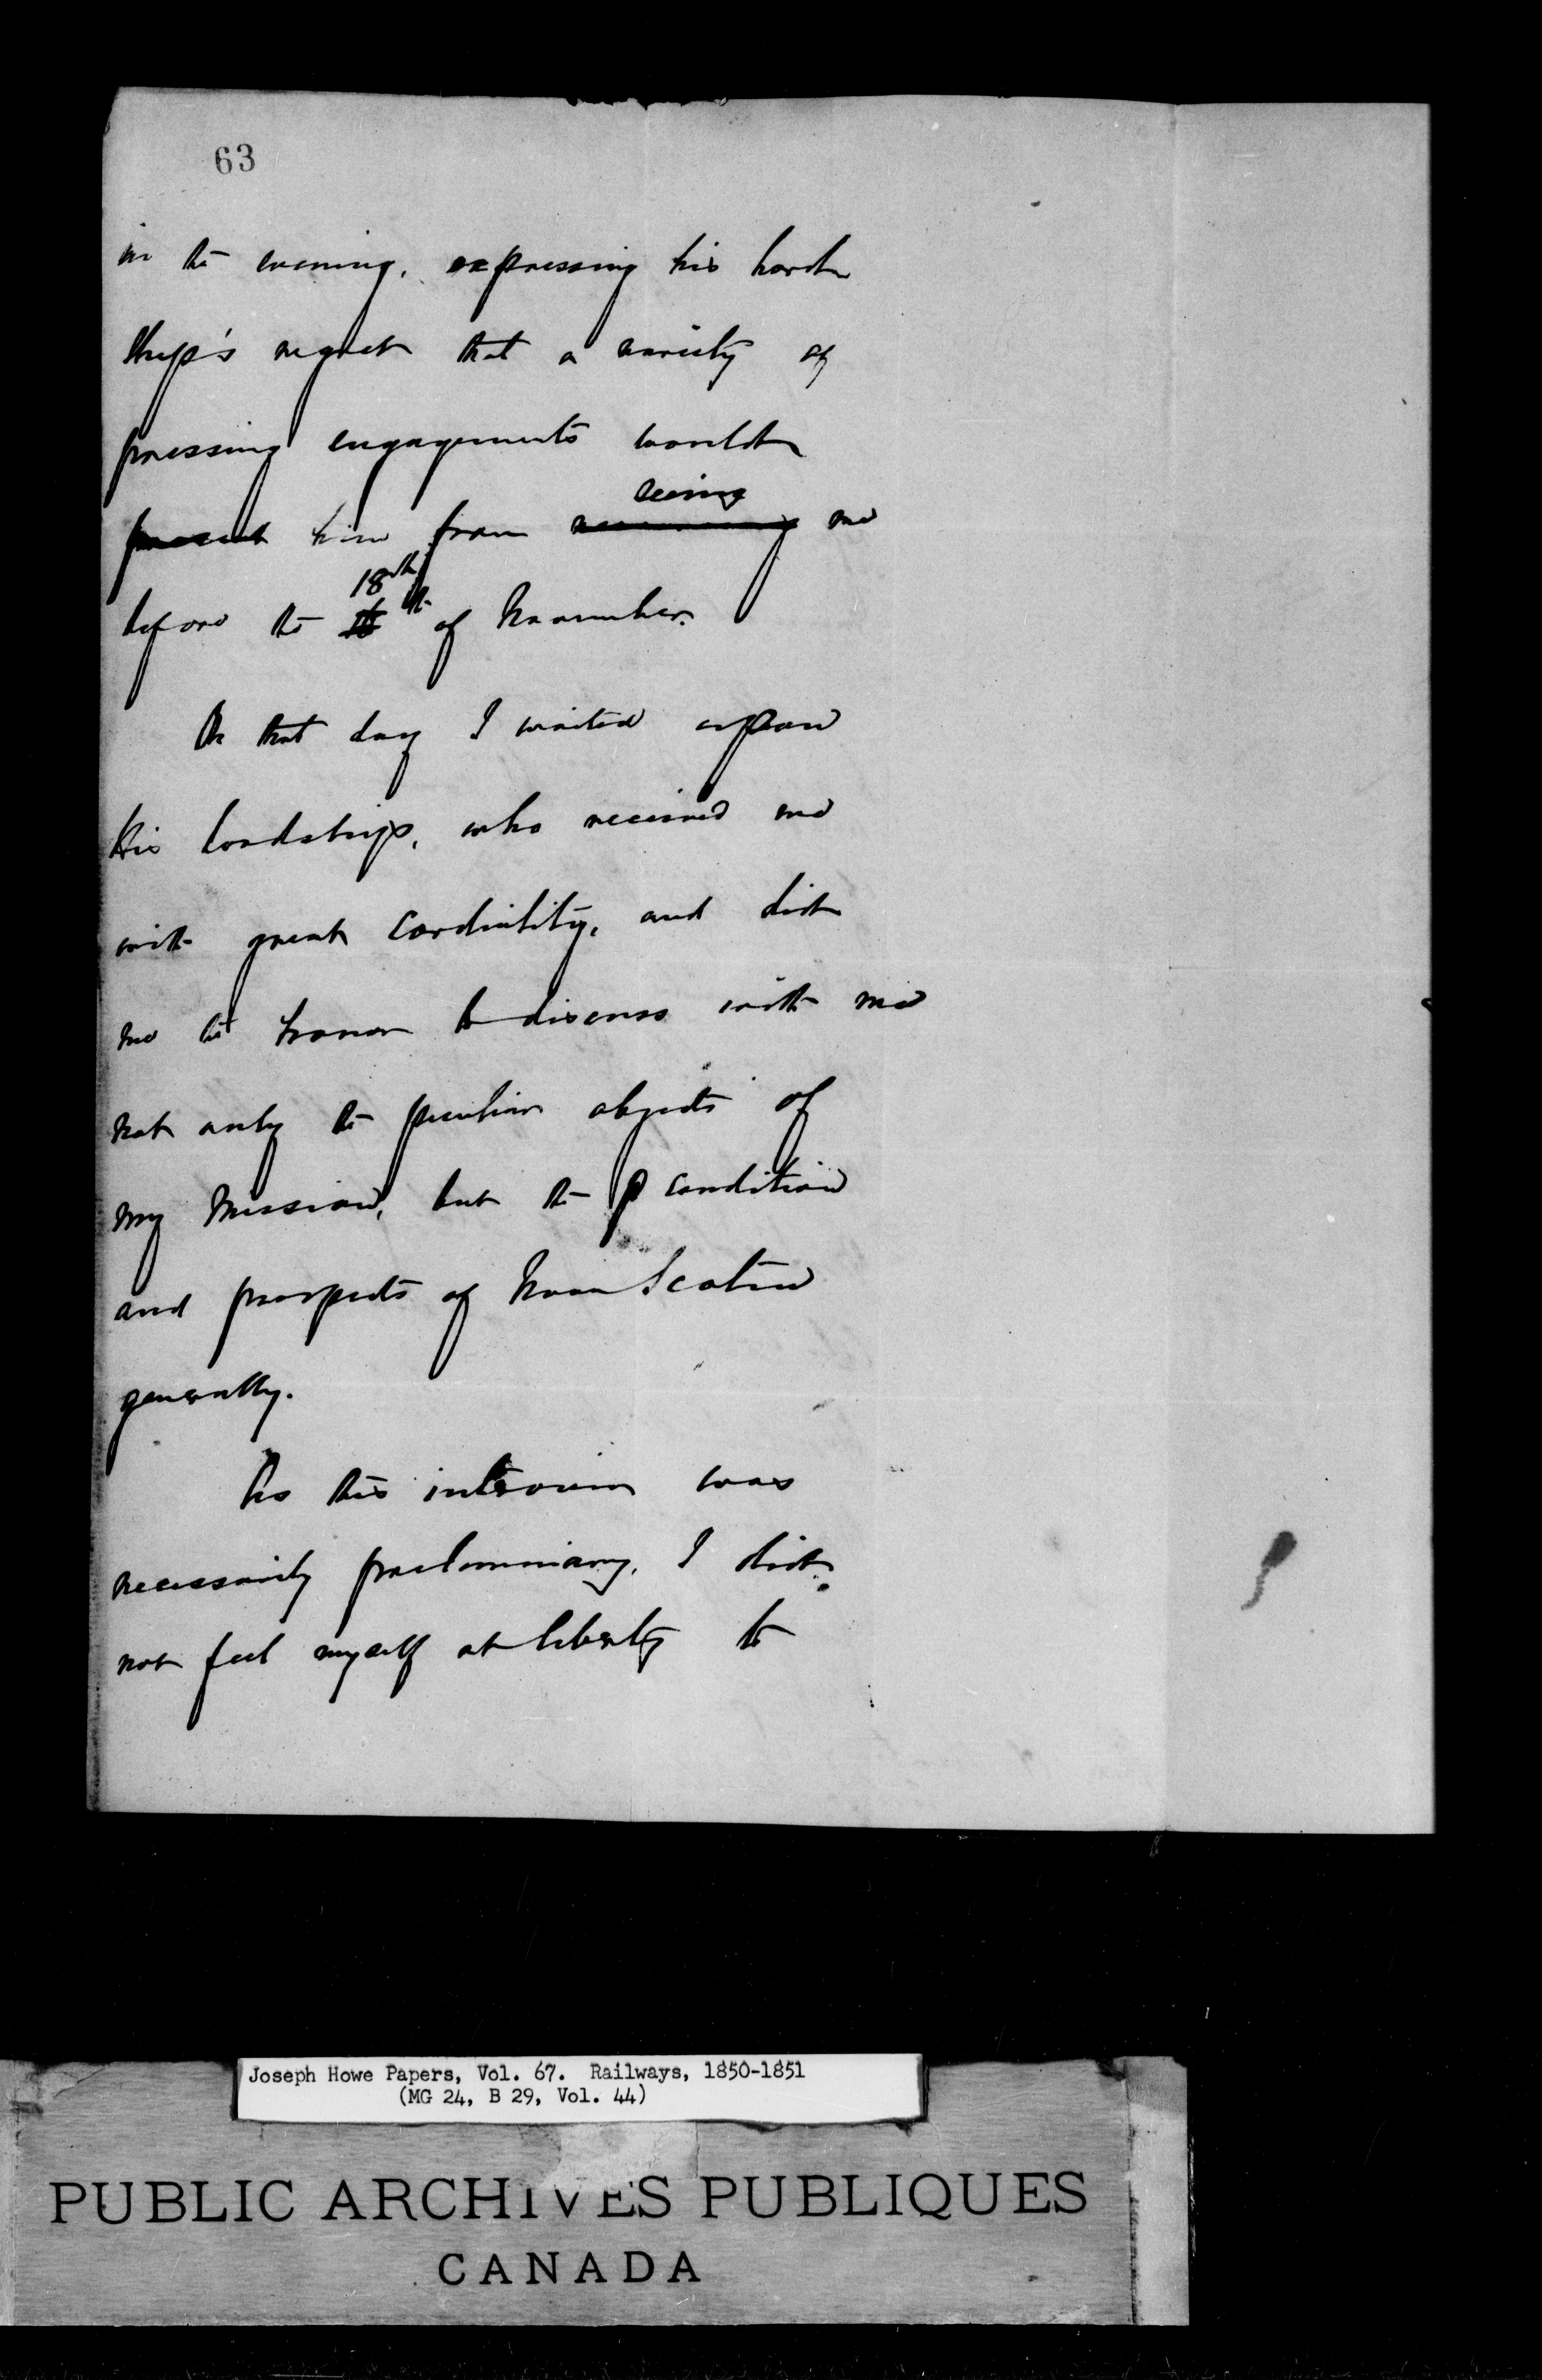 63
in the evening, expressing his Lord
ship's regret that a variety of
pressing engagements would
prevent him from seeing me
before the 18th th of November.
On that day I waited upon
His Lordship, who received me
with great cordiality, and did
me the honor to discuss with me
not only the peculiar objects of
my Mission, but the condition
and prospects of Nova Scotia
generally.
As this interview was
necessarily preliminary, I did
not feel myself at liberty to
Joseph Howe Papers, Vol. 67. Railways, 1850-1851
(MG 24, B 29, Vol. 44)
PUBLIC ARCHIVES PUBLIQUES
CANADA